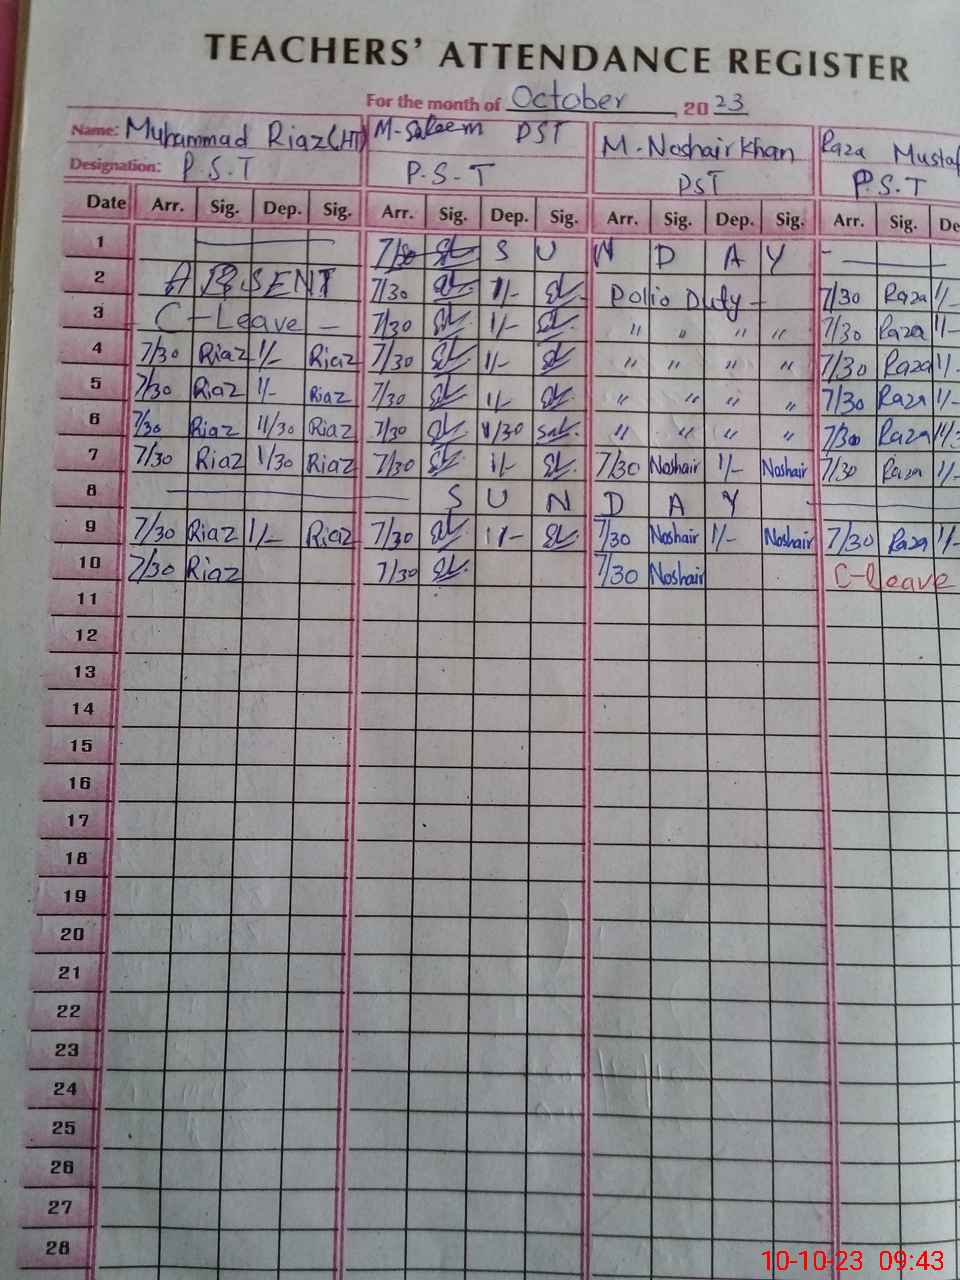 TEACHERS' ATTENDANCE REGISTER
For the month of October 2023
Name: Muhammad Riaz (HT) M-Saleem PST M. Noshair Khan Raza Mustaf
Designation: P.S.T P.S.T PST P.S.T
Date Arr. Sig. Dep. Sig. Arr. Sig. Dep. Sig. Arr. Sig. Dep. Sig. Arr. Sig. De
1 7/30 S U N D A Y
2 ABSENT 7/30 1/- Polio Duty - 7/30 Raza 1/-
3 C-Leave - 7/30 1/- " " " " 7/30 Raza 1/-
4 7/30 Riaz 1/- Riaz 7/30 1/- " " " " 7/30 Raza 1/-
5 7/30 Riaz 1/- Riaz 7/30 1/- " " " 7/30 Raza 1/-
6 7/30 Riaz 11/30 Riaz 7/30 11/30 " " " " 7/30 Raza
7 7/30 Riaz 1/30 Riaz 7/30 1/- 7/30 Noshair 1/- Noshair 7/30 Raza 1/-
8 S U N D A Y
9 7/30 Riaz 1/- Riaz 7/30 1/- 7/30 Noshair 1/- Noshair 7/30 Raza 1/-
10 7/30 Riaz 7/30 7/30 Noshair C-leave
11
12
13
14
15
16
17
18
19
20
21
22
23
24
25
26
27
28
10-10-23 09:43